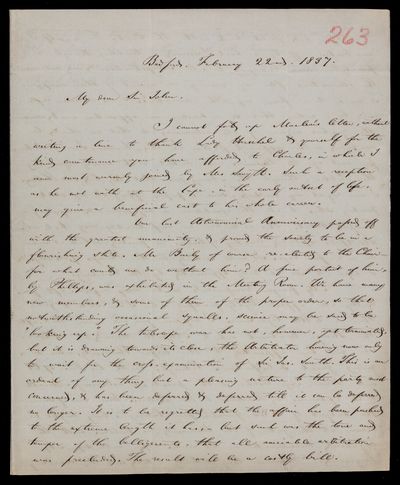 263
Bedford. February 22nd. 1837.
My dear Sir John.
I cannot fold up Maclear's letter, without
writing a line to thank Lady Herschel & yourself for the
kind countenance you have afforded to Charles, in which I
am most warmly joined by Mrs. Smyth. Such a reception
as he met with at the Cape, in the early outset of life,
may give a beneficial cast to his whole career.
Our last Astronomical Anniversary passed off
with the greatest unanimity, & proved the Society to be in a
flourishing state. Mr. Baily of course re-elected to the Chair
for what could we do without him? A fine portrait of him,
by Phillips, was exhibited in the Meeting Room. We have many
new members, & some of them of the proper order, so that
notwithstanding occasional squalls, science may be said to be
"looking up." The telescope war has not, however, yet terminated,
but it is drawing towards its close, the Arbitrator having now only
to wait for the cross-examination of Sir Jas. South. This is an
ordeal of any thing but a pleasing nature to the party most
concerned, & has been deferred & deferred till it can be deferred
no longer. It is to be regretted that the affair has been pushed
to the extreme length it has; but such was the tone and
temper of the belligerents, that all amicable arbitration
was precluded. The result will be a costly bill.